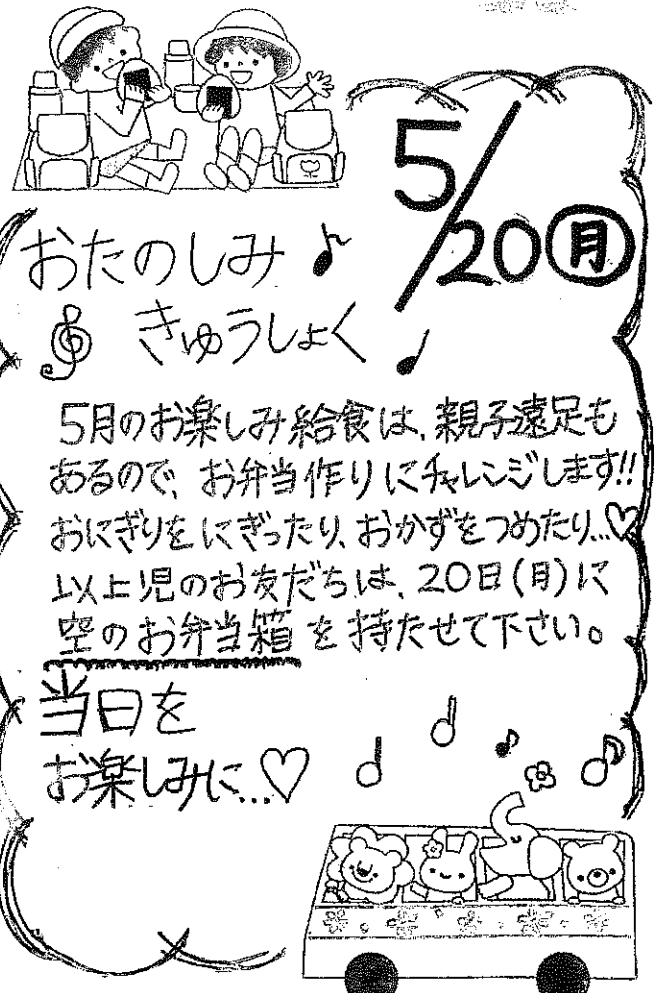 5/20㊊
おたのしみ♪
きゅうしょく
5月のお楽しみ給食は、親子遠足も
あるので、お弁当作りにチャレンジします!!
おにぎりをにぎったり、おかずをつめたり...♡
以上児のお友だちは、20日(月)に
空のお弁当箱を持たせて下さい。
当日を
お楽しみに...♡